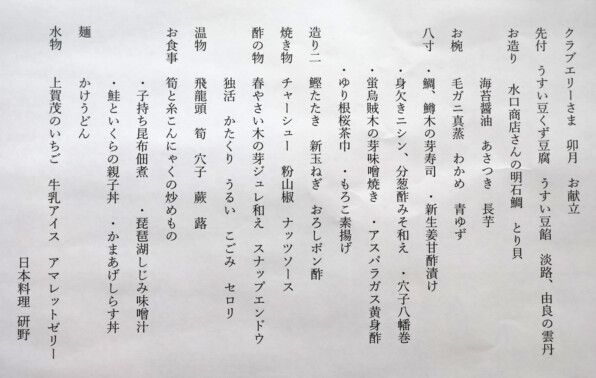 クラブエリーさま　卯月　お献立
先付　うすい豆くず豆腐　うすい豆餡　淡路、由良の雲丹
お造り　水口商店さんの明石鯛　とり貝
海苔醤油　あさつき　長芋
お椀　毛ガニ真蒸　わかめ　青ゆず
八寸　・鯛、鱒木の芽寿司　・新生姜甘酢漬け
・身欠きニシン、分葱酢みそ和え　・穴子八幡巻
・蛍烏賊木の芽味噌焼き　・アスパラガス黄身酢
・ゆり根桜茶巾　・もろこ素揚げ
造り二　鰹たたき　新玉ねぎ　おろしポン酢
焼き物　チャーシュー　粉山椒　ナッツソース
酢の物　春やさい木の芽ジュレ和え　スナップエンドウ
独活　かたくり　うるい　こごみ　セロリ
温物　飛龍頭　筍　穴子　蕨　蕗
お食事　筍と糸こんにゃくの炒めもの
・子持ち昆布佃煮　・琵琶湖しじみ味噌汁
・鮭といくらの親子丼　・かまあげしらす丼
麺　かけうどん
水物　上賀茂のいちご　牛乳アイス　アマレットゼリー
日本料理　研野